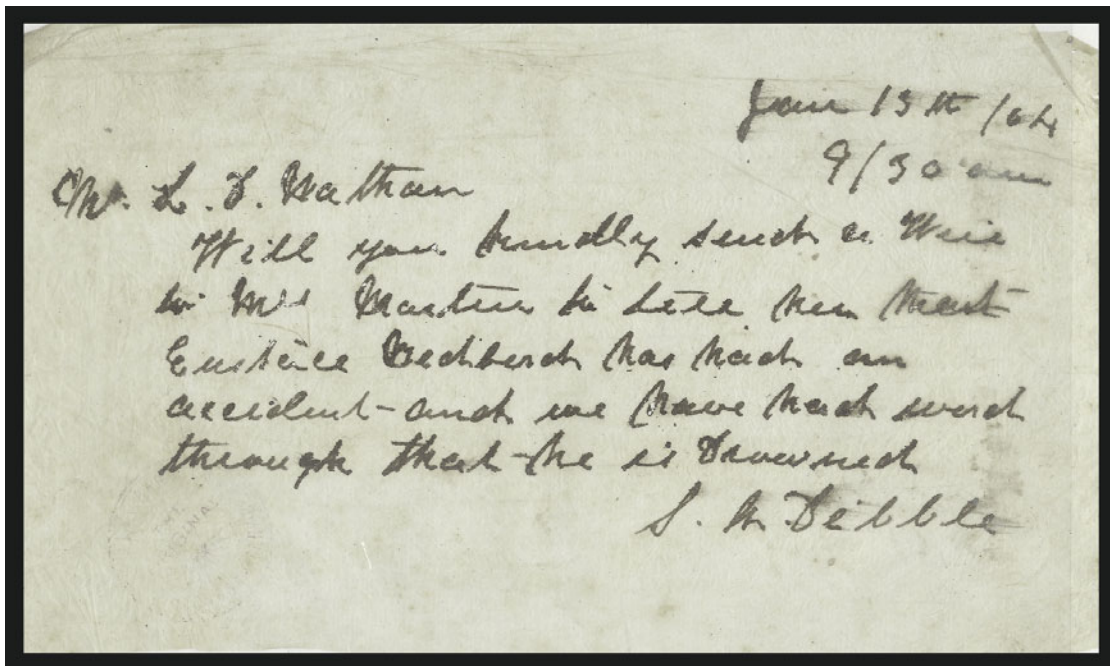 Jan 13th /04
9/30 am
Mr. L. F. Watham
Will you kindly send a Wire
to Mrs Martin to tell her that
Eustace had an
accident - and we have had word
through that he is Drowned
S. M. Dibble